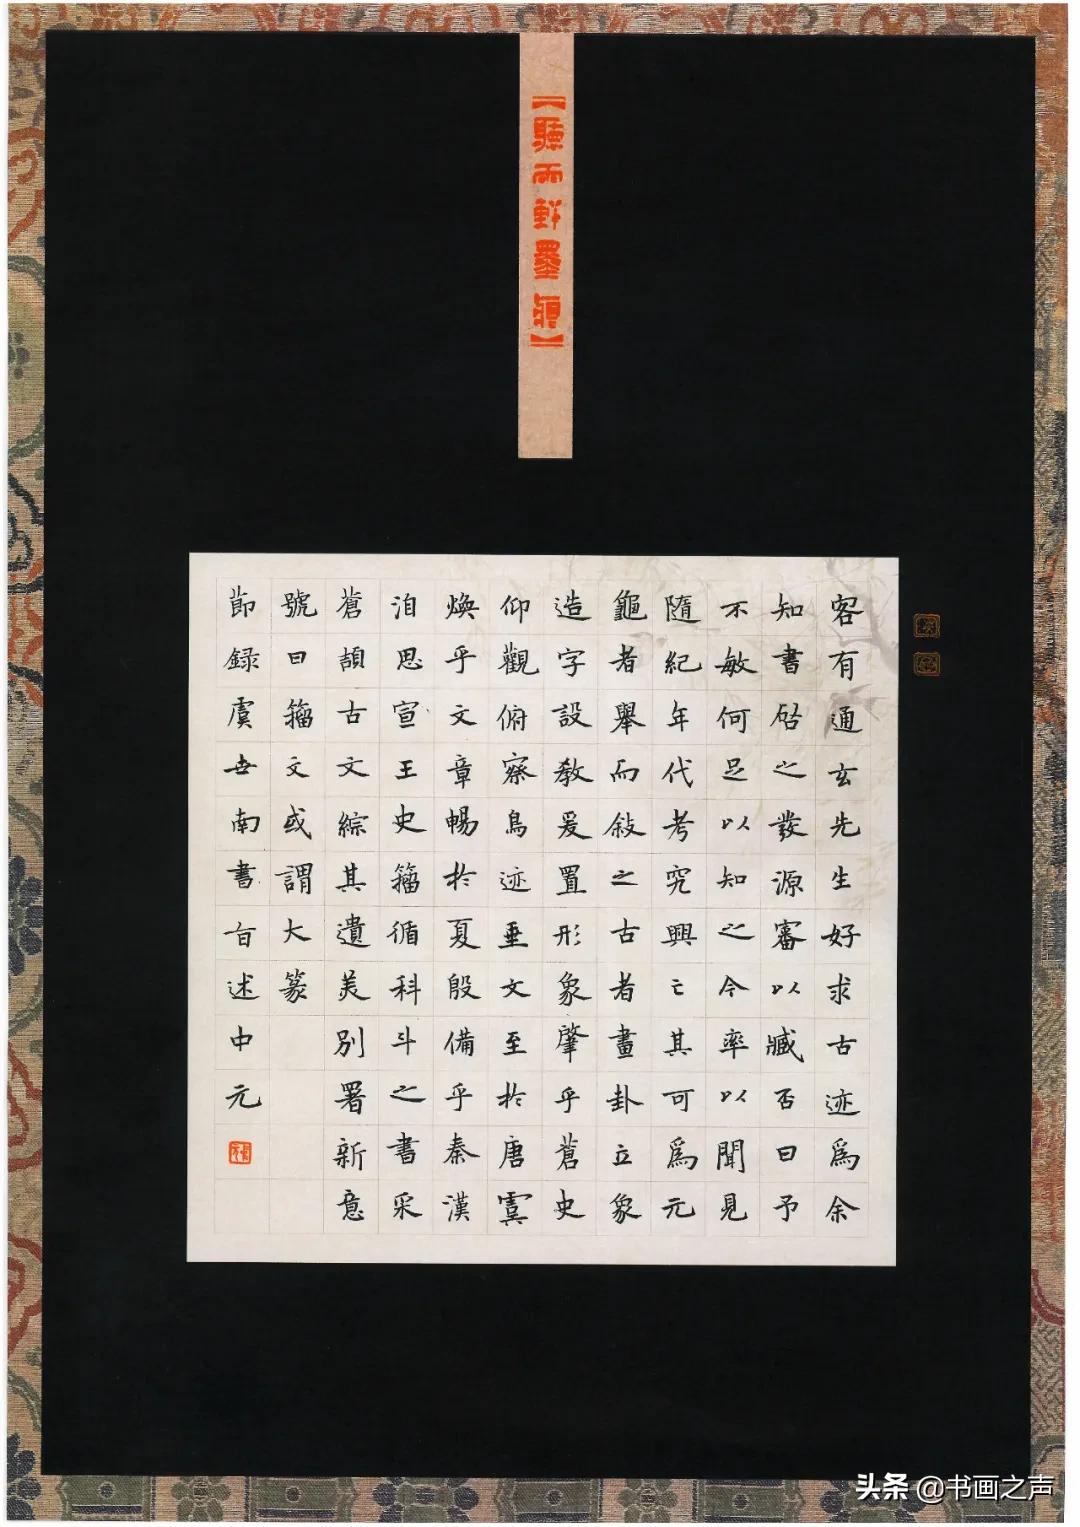 【聽雨軒墨痕】
客有通玄先生好求古迹爲余
知書之發源審以臧否曰予
不敏何足以知之今率以聞見
隨紀年代考究興亡其可爲元
龜者舉而敍之古者畫卦立象
造字設教爰置形象肇乎蒼史
仰觀俯察鳥迹垂文至於唐虞
煥乎文章暢於夏殷備乎秦漢
洎思宣王史籀循科斗之書采
蒼頡古文綜其遺美別署新意
號曰籀文或謂大篆
節録虞世南書旨述中元
头条 @书画之声